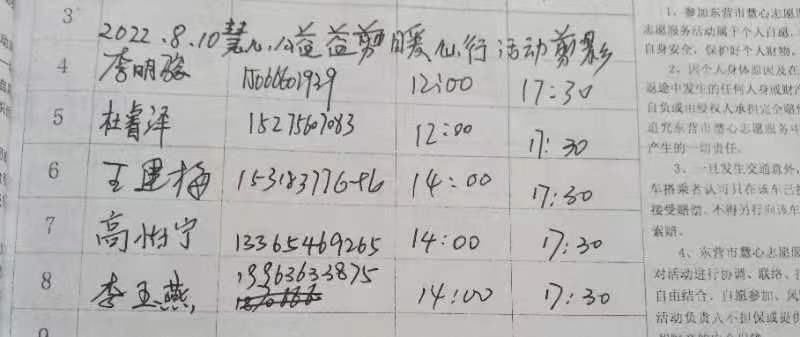 3
2022.8.10慧心公益益剪暖心行活动剪影
4 李明骏 15066601939 12:00 17:30
5 杜睿泽 15275607083 12:00 17:30
6 王建梅 14:00 17:30
7 高怡宁 13365469265 14:00 17:30
8 李玉燕 19963633875 14:00 17:30
1、参加东营市慧心志愿
志愿服务活动属于个人自愿,
自身安全,保护好个人财物,
2、因个人身体原因及在
返途中发生的任何人身或财产
自负或由侵权人承担完全赔偿
追究东营市慧心志愿服务中
产生的一切责任。
3、一旦发生交通意外,
车搭乘者认可只在该车已
接受赔偿,不得另行向该车
索赔。
4、东营市慧心志愿服
对活动进行协调、联络、
自由结合、自愿参加、风
活动负责人不担保或提供